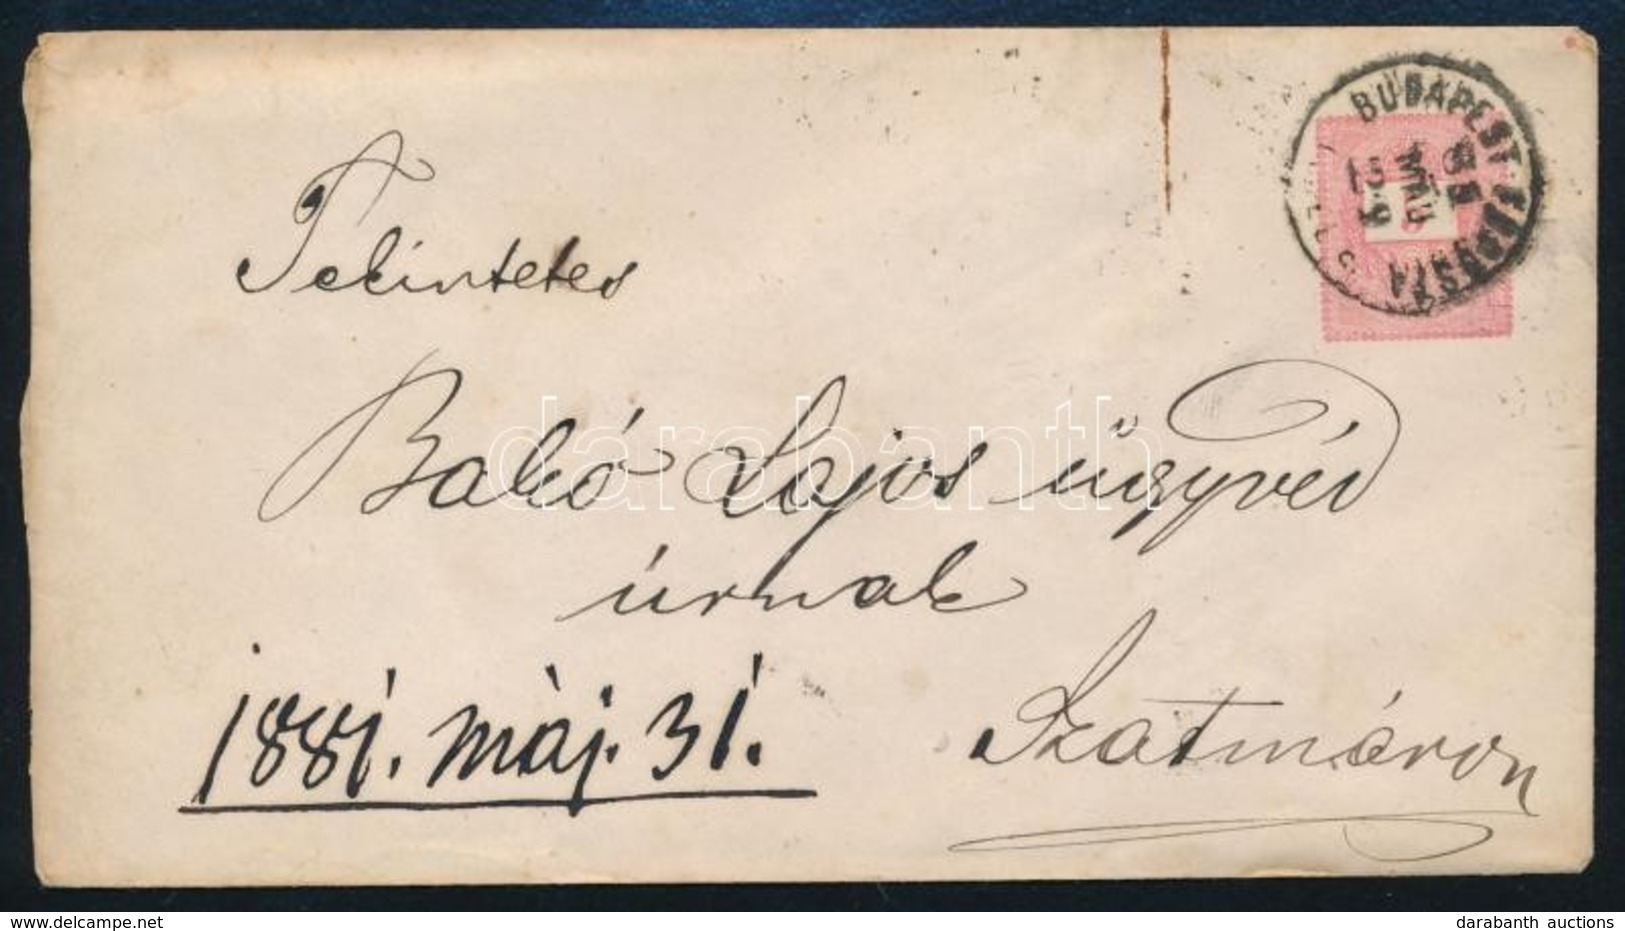 BUDAPEST
Tekintetes
Bakó Lajos ügyvéd
úrnak
1881. máj. 31.
Szatmáron
darabanth
www.delcampe.net
darabanth auctions